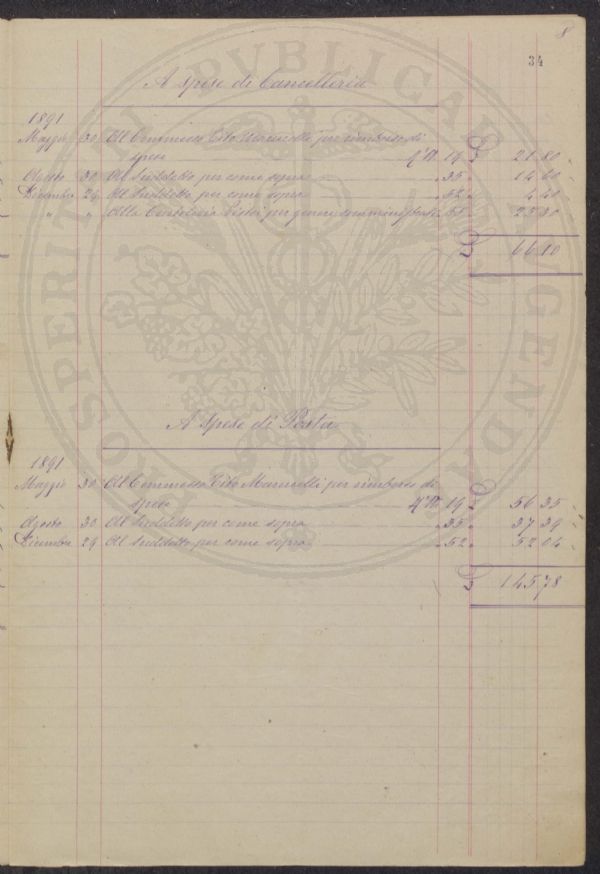 8
34
A spese di Cancelleria
1891
Maggio 30 Al Commesso Tito Marinelli per rimborso di
spese M.º 19 £ 21.80
Agosto 30 Al Suddetto per come sopra " 35 " 14.60
Dicembre 24 Al Suddetto per come sopra " 52 " 4.40
" " Alla Cartoleria per genere somministrato 51 "
£ 66.10
A spese di Posta
1891
Maggio 30 Al Commesso Tito Marinelli per rimborso di
spese M.º 19 £ 56.35
Agosto 30 Al Suddetto per come sopra " 35 " 37.39
Dicembre 24 Al Suddetto per come sopra " 52 " 52.04
£ 145.78
PROSPERITATI PUBLICAE AUGENDAE